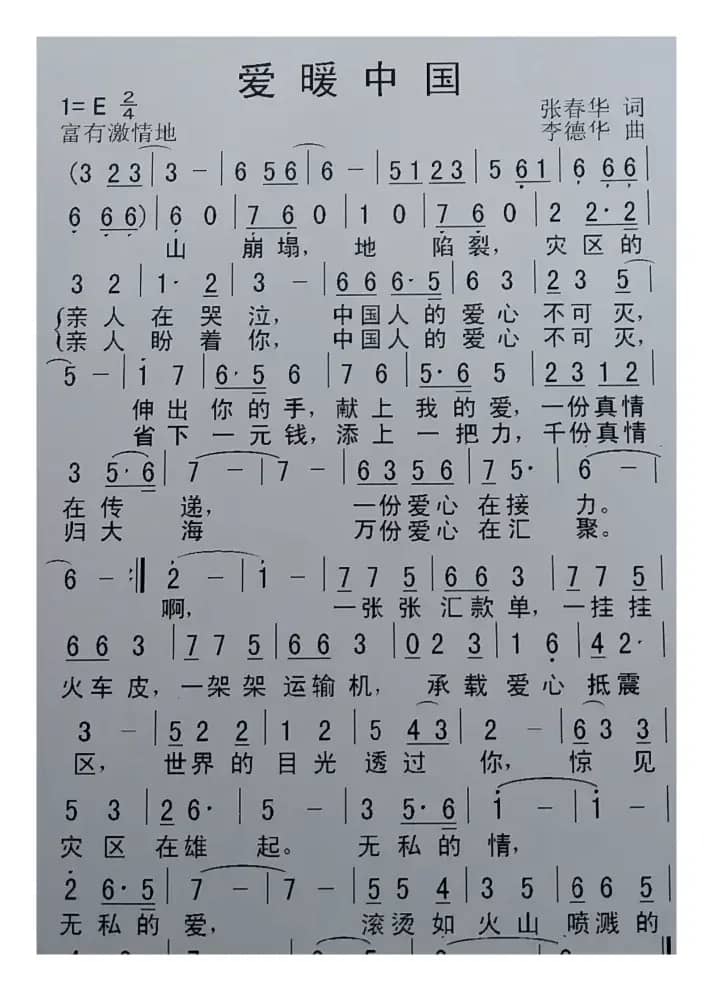 爱暖中国
1=E 2/4
张春华 词
富有激情地
李德华 曲
(3 23 | 3 - | 6 56 | 6 - | 5123 | 5 61 | 6 66 |
6 66) | 6 0 | 7 6 0 | 1 0 | 7 6 0 | 2 2·2 |
山 崩塌, 地 陷裂, 灾区的
3 2 | 1· 2 | 3 - | 66 6·5 | 6 3 | 23 5 |
亲人在哭泣, 中国人的爱心不可灭,
亲人盼着你, 中国人的爱心不可灭,
5 - | 1 7 | 6·5 6 | 7 6 | 5·6 5 | 23 12 |
伸出你的手, 献上我的爱, 一份真情
省下一元钱, 添上一把力, 千份真情
3 5·6 | 7 - | 7 - | 63 56 | 7 5· | 6 - |
在传递, 一份爱心在接力。
归大海 万份爱心在汇聚。
6 - :‖ 2 - | 1 - | 77 5 | 66 3 | 77 5 |
啊, 一张张汇款单, 一挂挂
66 3 | 77 5 | 66 3 | 02 3 | 1 6 | 4 2· |
火车皮, 一架架运输机, 承载爱心抵震
3 - | 52 2 | 1 2 | 5 43 | 2 - | 63 3 |
区, 世界的目光透过你, 惊见
5 3 | 2 6· | 5 - | 3 5·6 | 1 - | 1 - |
灾区在雄起。 无私的情,
2 6·5 | 7 - | 7 - | 55 4 | 3 5 | 66 5 |
无私的爱, 滚烫如火山喷溅的